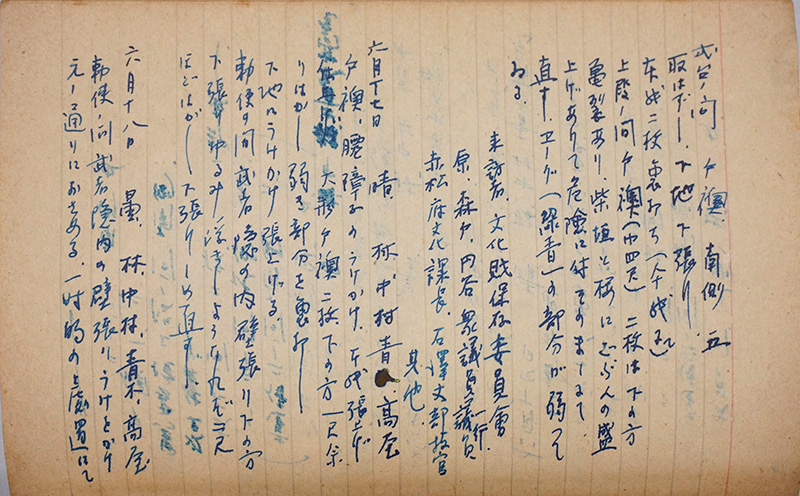 式台ノ間 戸襖 南側 五
取はずし、下地下張り
本紙二枚裏打ち
上段ノ間戸襖(巾四尺)二枚は下の方
亀裂あり、柴垣と梅にごふんの盛
上げありて危険に付そのままにて
直す、エノグ(緑青)の部分が弱って
ゐる。
来訪者、文化財保存委員會
原、森 、内谷 衆議員議員一行
赤松府文化課長、石澤文部技官
其他
六月十七日 晴、林、中村、青 高屋
戸襖、腰障子のうけかけ、本紙張上げ
戸襖二枚、下の方一尺余
りはがし 弱き部分を裏打し
下地にうけかけ張上げる
勅使の間武者隠の内壁張り下の方
下張りゆるみ浮きしようなれば二尺
ほどはがし 下張りしめ直す、
六月十八日 曇、林、中村、青木、高屋
勅使ノ間武者隠内の壁張りうけとかけ
元の通りにおさめる、一時的の上處置にて